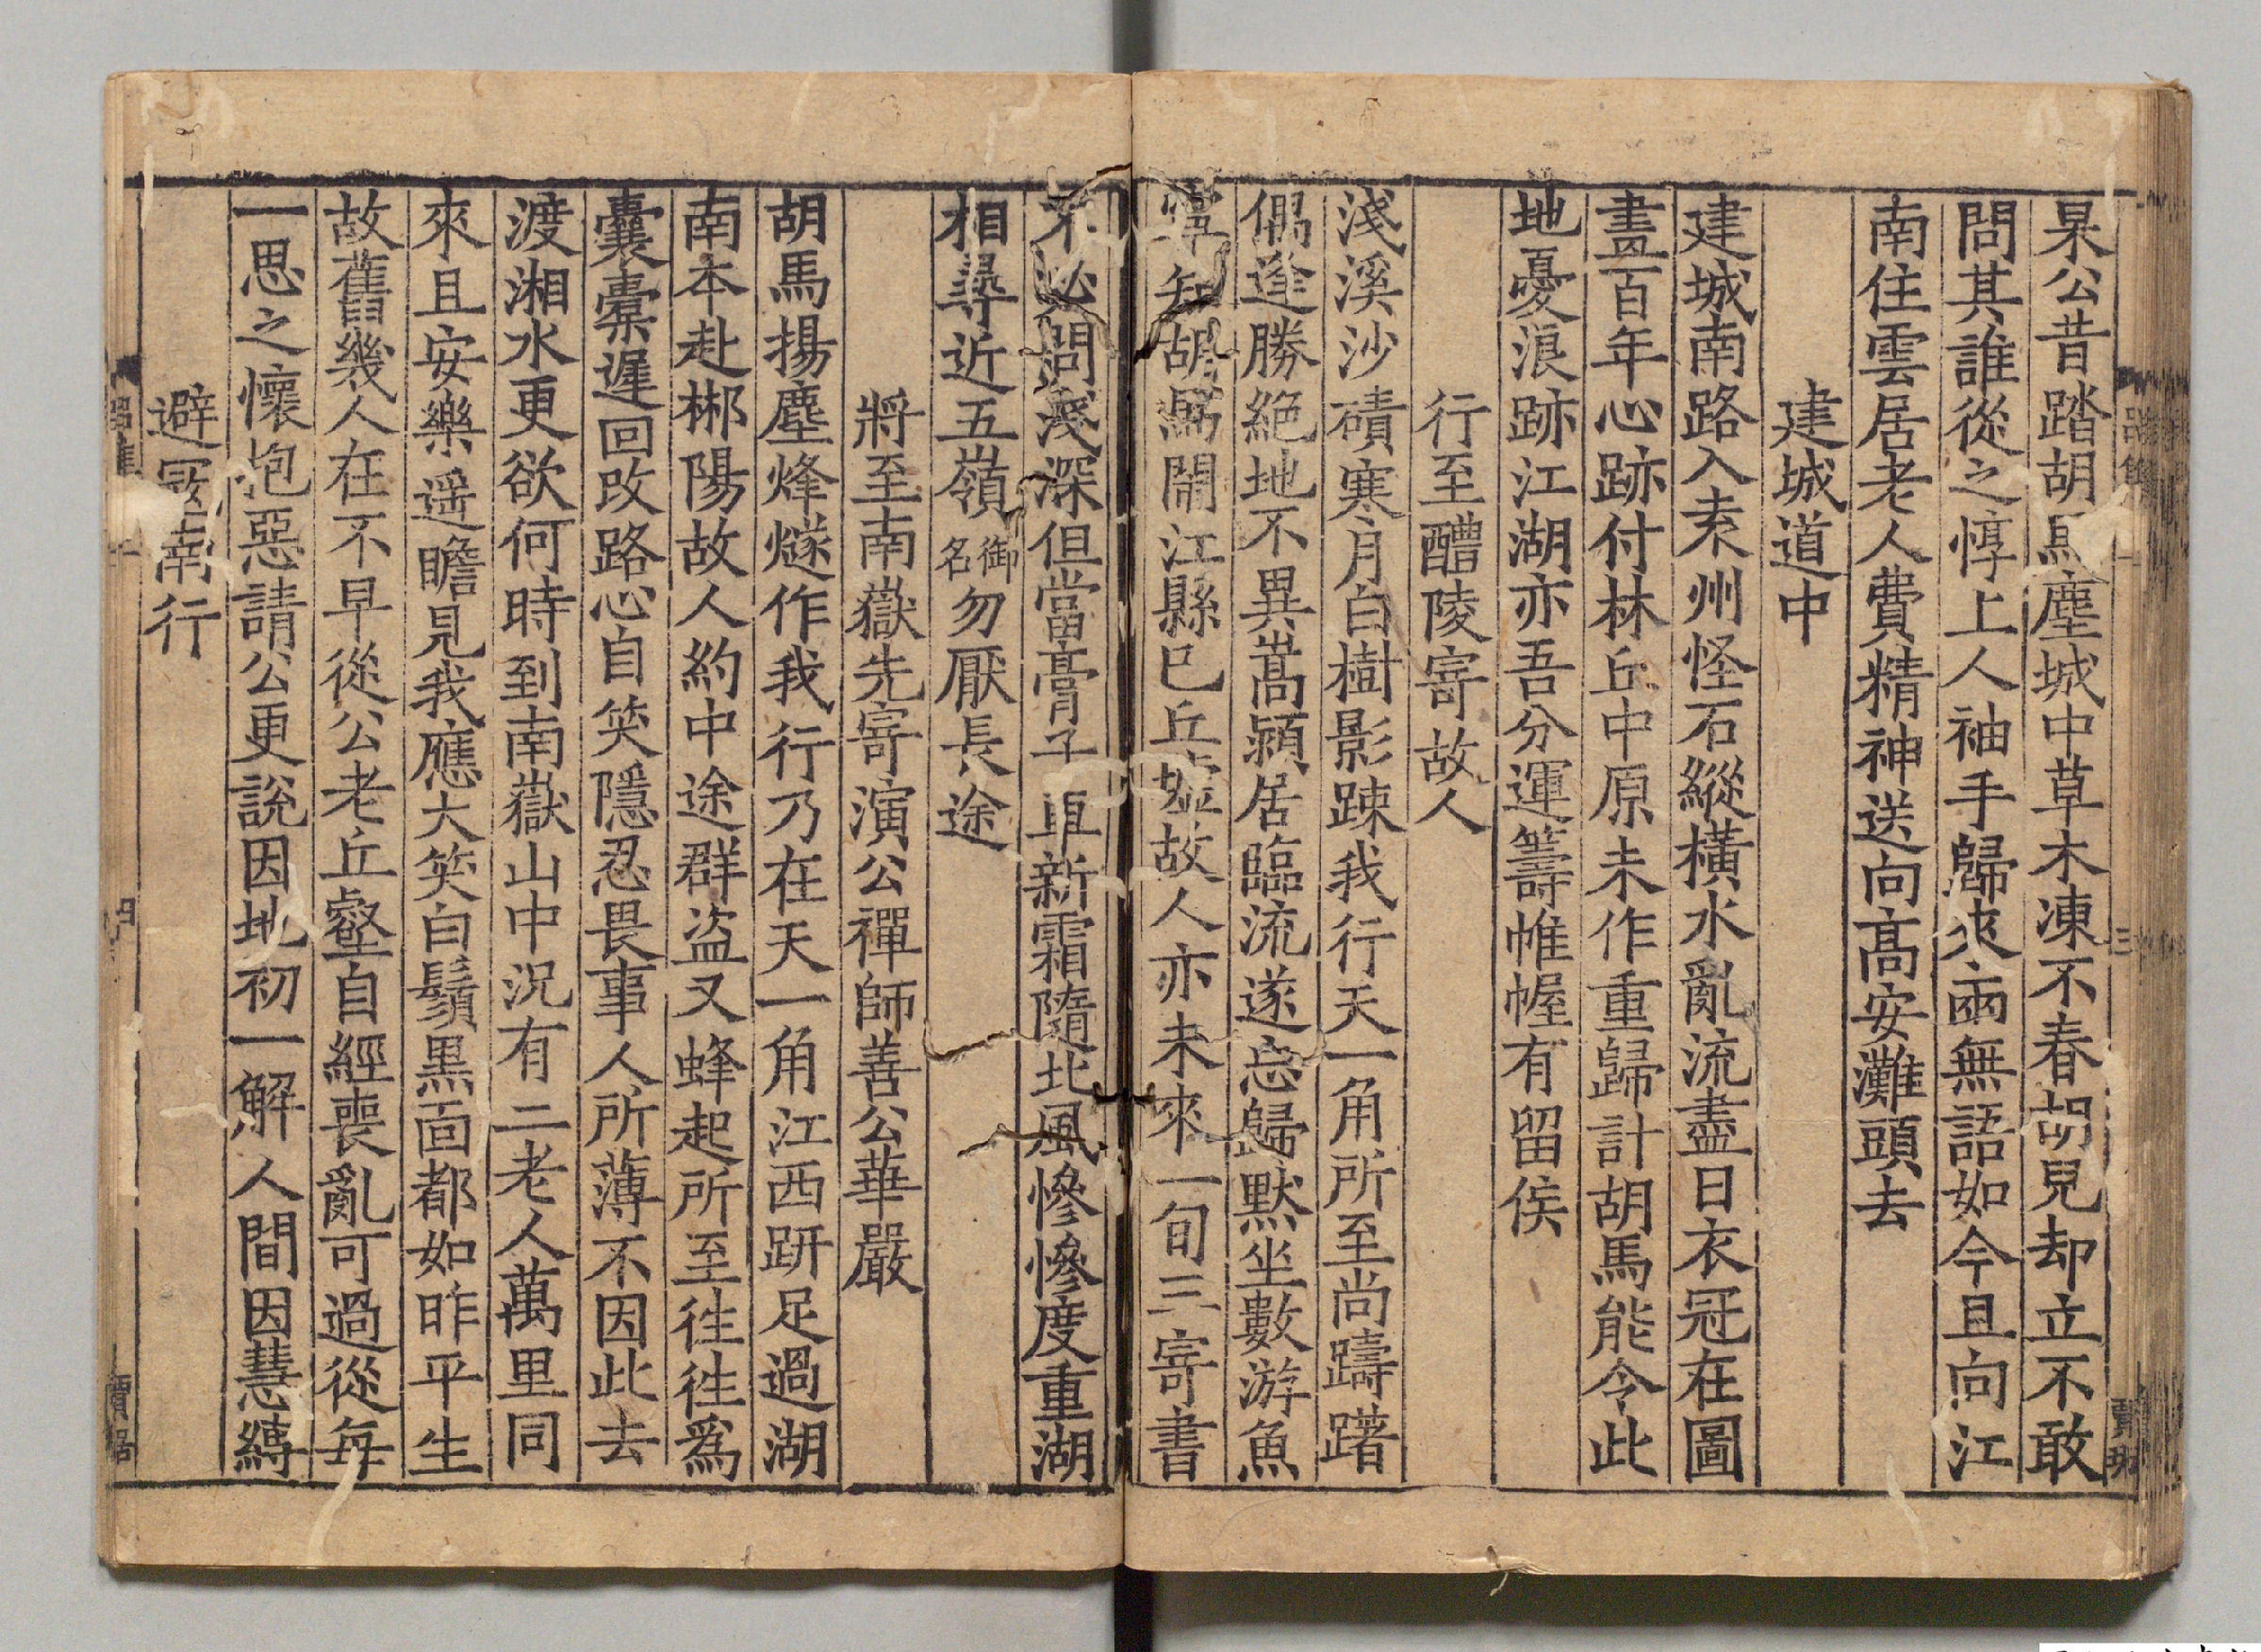 杲公昔踏胡馬塵城中草木凍不春胡兒却立不敢
問其誰從之惇上人袖手歸來兩無語如今且向江
南住雲居老人費精神送向髙安灘頭去
建城道中
建城南路入袁州怪石縱橫水亂流盡日衣冠在圖
畫百年心跡付林丘中原未作重歸計胡馬能令此
地憂浪跡江湖亦吾分運籌帷幄有留侯
行至醴陵寄故人
淺溪沙磧寒月白樹影踈我行天一角所至尚躊躇
偶逢勝絶地不異嵩潁居臨流遂忘歸默坐數游魚
寧知胡馬閙江縣已丘墟故人亦未來一旬三寄書
不必問淺深但當膏子車新霜隨北風慘慘度重湖
相尋近五嶺御名勿厭長途
將至南嶽先寄演公禪師善公華嚴
胡馬揚塵烽燧作我行乃在天一角江西趼足過湖
南本赴郴陽故人約中途群盗又蜂起所至徃徃爲
囊橐遲回改路心自笑隱忍畏事人所薄不因此去
渡湘水更欲何時到南嶽山中況有二老人萬里同
來且安樂遥瞻見我應大笑白鬚黒面都如昨平生
故舊幾人在不早從公老丘壑自經喪亂可過從每
一思之懷抱惡請公更說因地初一解人間因慧縛
避寇南行